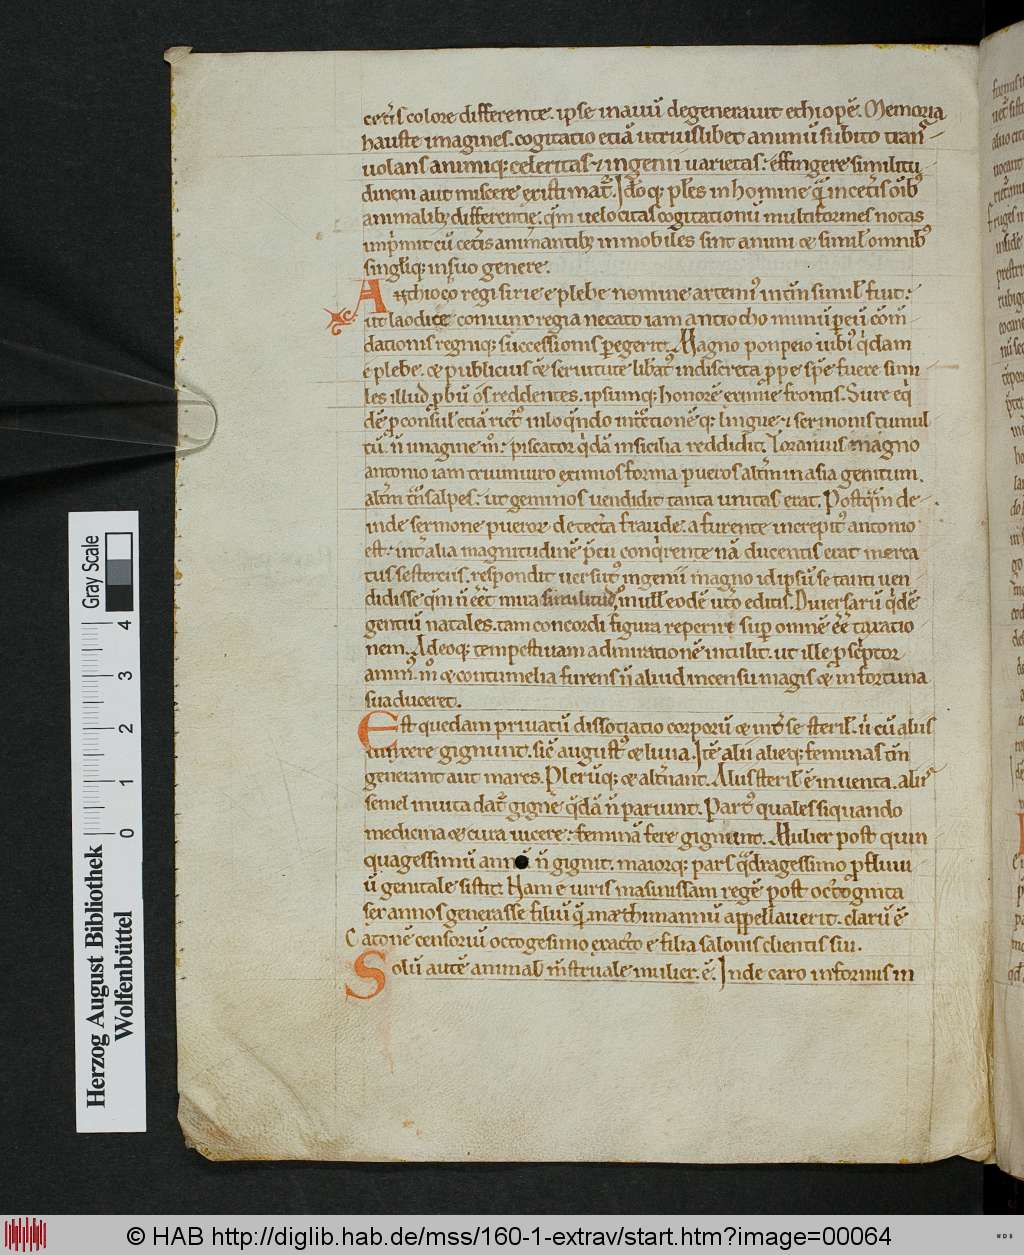 cet̃is colore differente. ipse in auũ degenerauit ęthiopẽ. Memoria
hauste imagines. cogitatio etiã utriuslibet animũ subito tran
uolans animiq; celeritas & ingenii uarietas: effingere similitu
dinem aut miscere existimat̃. Ideoq; plẽs in homine q̃ in cet̃is oĩbꝰ
animalibꝫ differentię. qm̃ uelocitas cogitationũ multiformes notas
imp̃mit cũ cet̃is animantibꝫ inmobiles sint animi & simil̃ omnibꝰ
singl̃iq; in suo genere.
Antiocho regi sirię e plebe nomine artemiꝰ in tm̃ simil̃ fuit:
ut laodice coniunx regia necato iam antiocho mimũ ꝑ eũ cõm̃
dationis regniq; successionis ꝑegerit. Magno ponpeio uibiꝰ q̇dam
e plebe. & publicius &̃ seruitute lib̃atꝰ indiscreta ꝓpe spẽ fuere simi
les illud ꝓbũ os reddentes. ipsumq; honorẽ eximię frontis. Sure eq̇
dẽ ꝓconsul̃ etiã rict̃ in loq̃ndo int̃ctionẽ q; linguę & sermonis tumul
tũ. ñ imagine m̊: piscator q̇dã in sicilia reddidit. Toranius magno
antonio iam triumuiro eximios forma pueros alt̃m in asia genitum.
alt̃m t̃nsalpes: ut geminos uendidit tanta unitas erat. Postq̃m de
inde sermone pueror detecta fraude. a furente increpitꝰ antonio
est: int̃ alia magnitudinẽ p̃cii conq̃rente nã ducentis erat merca
tus sestercus. respondit uersutꝰ ingenii magno id ipsũ se tanti uen
didisse qm̃ ñ eẽt mira similitudo in ull̃ eodẽ ut̊o editis. Diuersarũ q̇dẽ
gentiũ natales. tam concordi figura reperire sup̃ omnẽ eẽ taxatio
nem. Adeoq; tempestiuam admirationẽ intulit. ut ille ꝓscptor
animꝰ. m̊ & contumelia furens ñ aliud in censu magis & in fortuna
sua duceret.
Est quedam priuatũ dissotiatio corporũ & int̃ se steril̃. ñ cũ aliis
iunxere gignunt. sic̃ augustꝰ & liuia. Itẽ alii alieq; feminas tm̃
generant aut mares. Plerũq; & alt̃nant. Aliis steril̃ ẽ inuenta. aliis
semel in uita dat̃ gigne q̃dã ñ pariunt. Partꝰ quales siquando
medicina & cura uicere: feminã fere gignunt. Mulier post quin
quagessimũ annũ ñ gignit. maiorq; pars q̃dragessimo ꝓfluui
ũ genitale sistit. Nam e uiris masinissam regẽ post octoginta
sex annos generasse filiũ q̃ mæthimannũ appellauerit. clarũ ẽ
Catonẽ censoriũ octogesimo exacto e filia salonis clientis sui.
Solũ autẽ animal̃ m̃struale mulier. ẽ. Inde caro informis in
Herzog August Bibliothek
Wolfenbüttel
0 1 2 3 4
Gray Scale
© HAB http://diglib.hab.de/mss/160-1-extrav/start.htm?image=00064